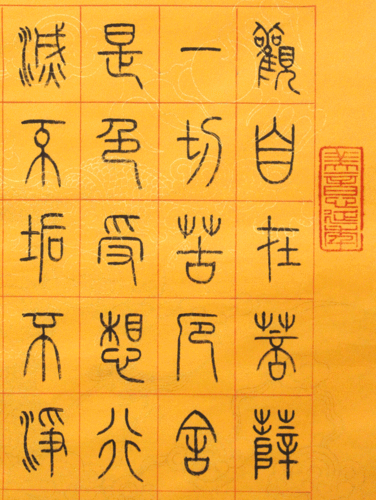 觀自在菩薛
一切苦厄舍
是色受想行
滅不垢不淨